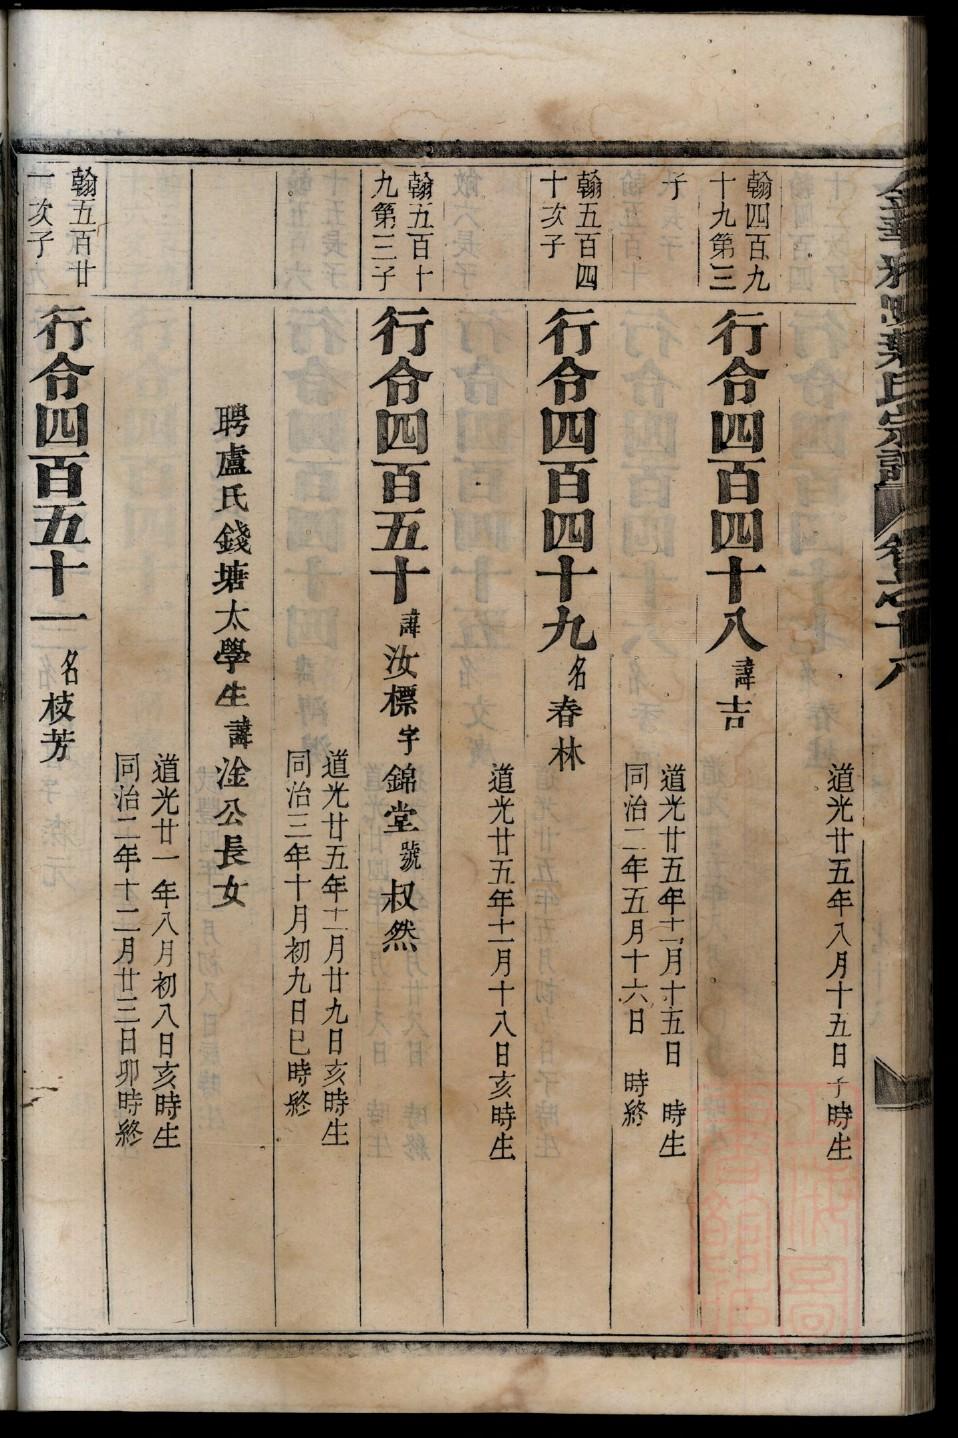 道光廿五年八月十五日子時生
翰四百九
十九第三
子
行令四百四十八諱吉
道光廿五年十一月十五日 時生
同治二年五月十六日 時終
翰五百四
十次子
行令四百四十九名春林
道光廿五年十一月十八日亥時生
翰五百十
九第三子
行令四百五十諱汝標字錦堂號叔然
道光廿五年十一月廿九日亥時生
同治三年十月初九日巳時終
聘盧氏錢塘太學生諱淦公長女
道光廿一年八月初八日亥時生
同治二年十二月廿三日卯時終
翰五百廿
一次子
行令四百五十一名枝芳